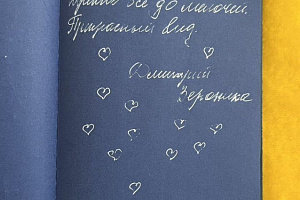 все до мелочей.
Прекрасный вид.
Дмитрий
Вероника